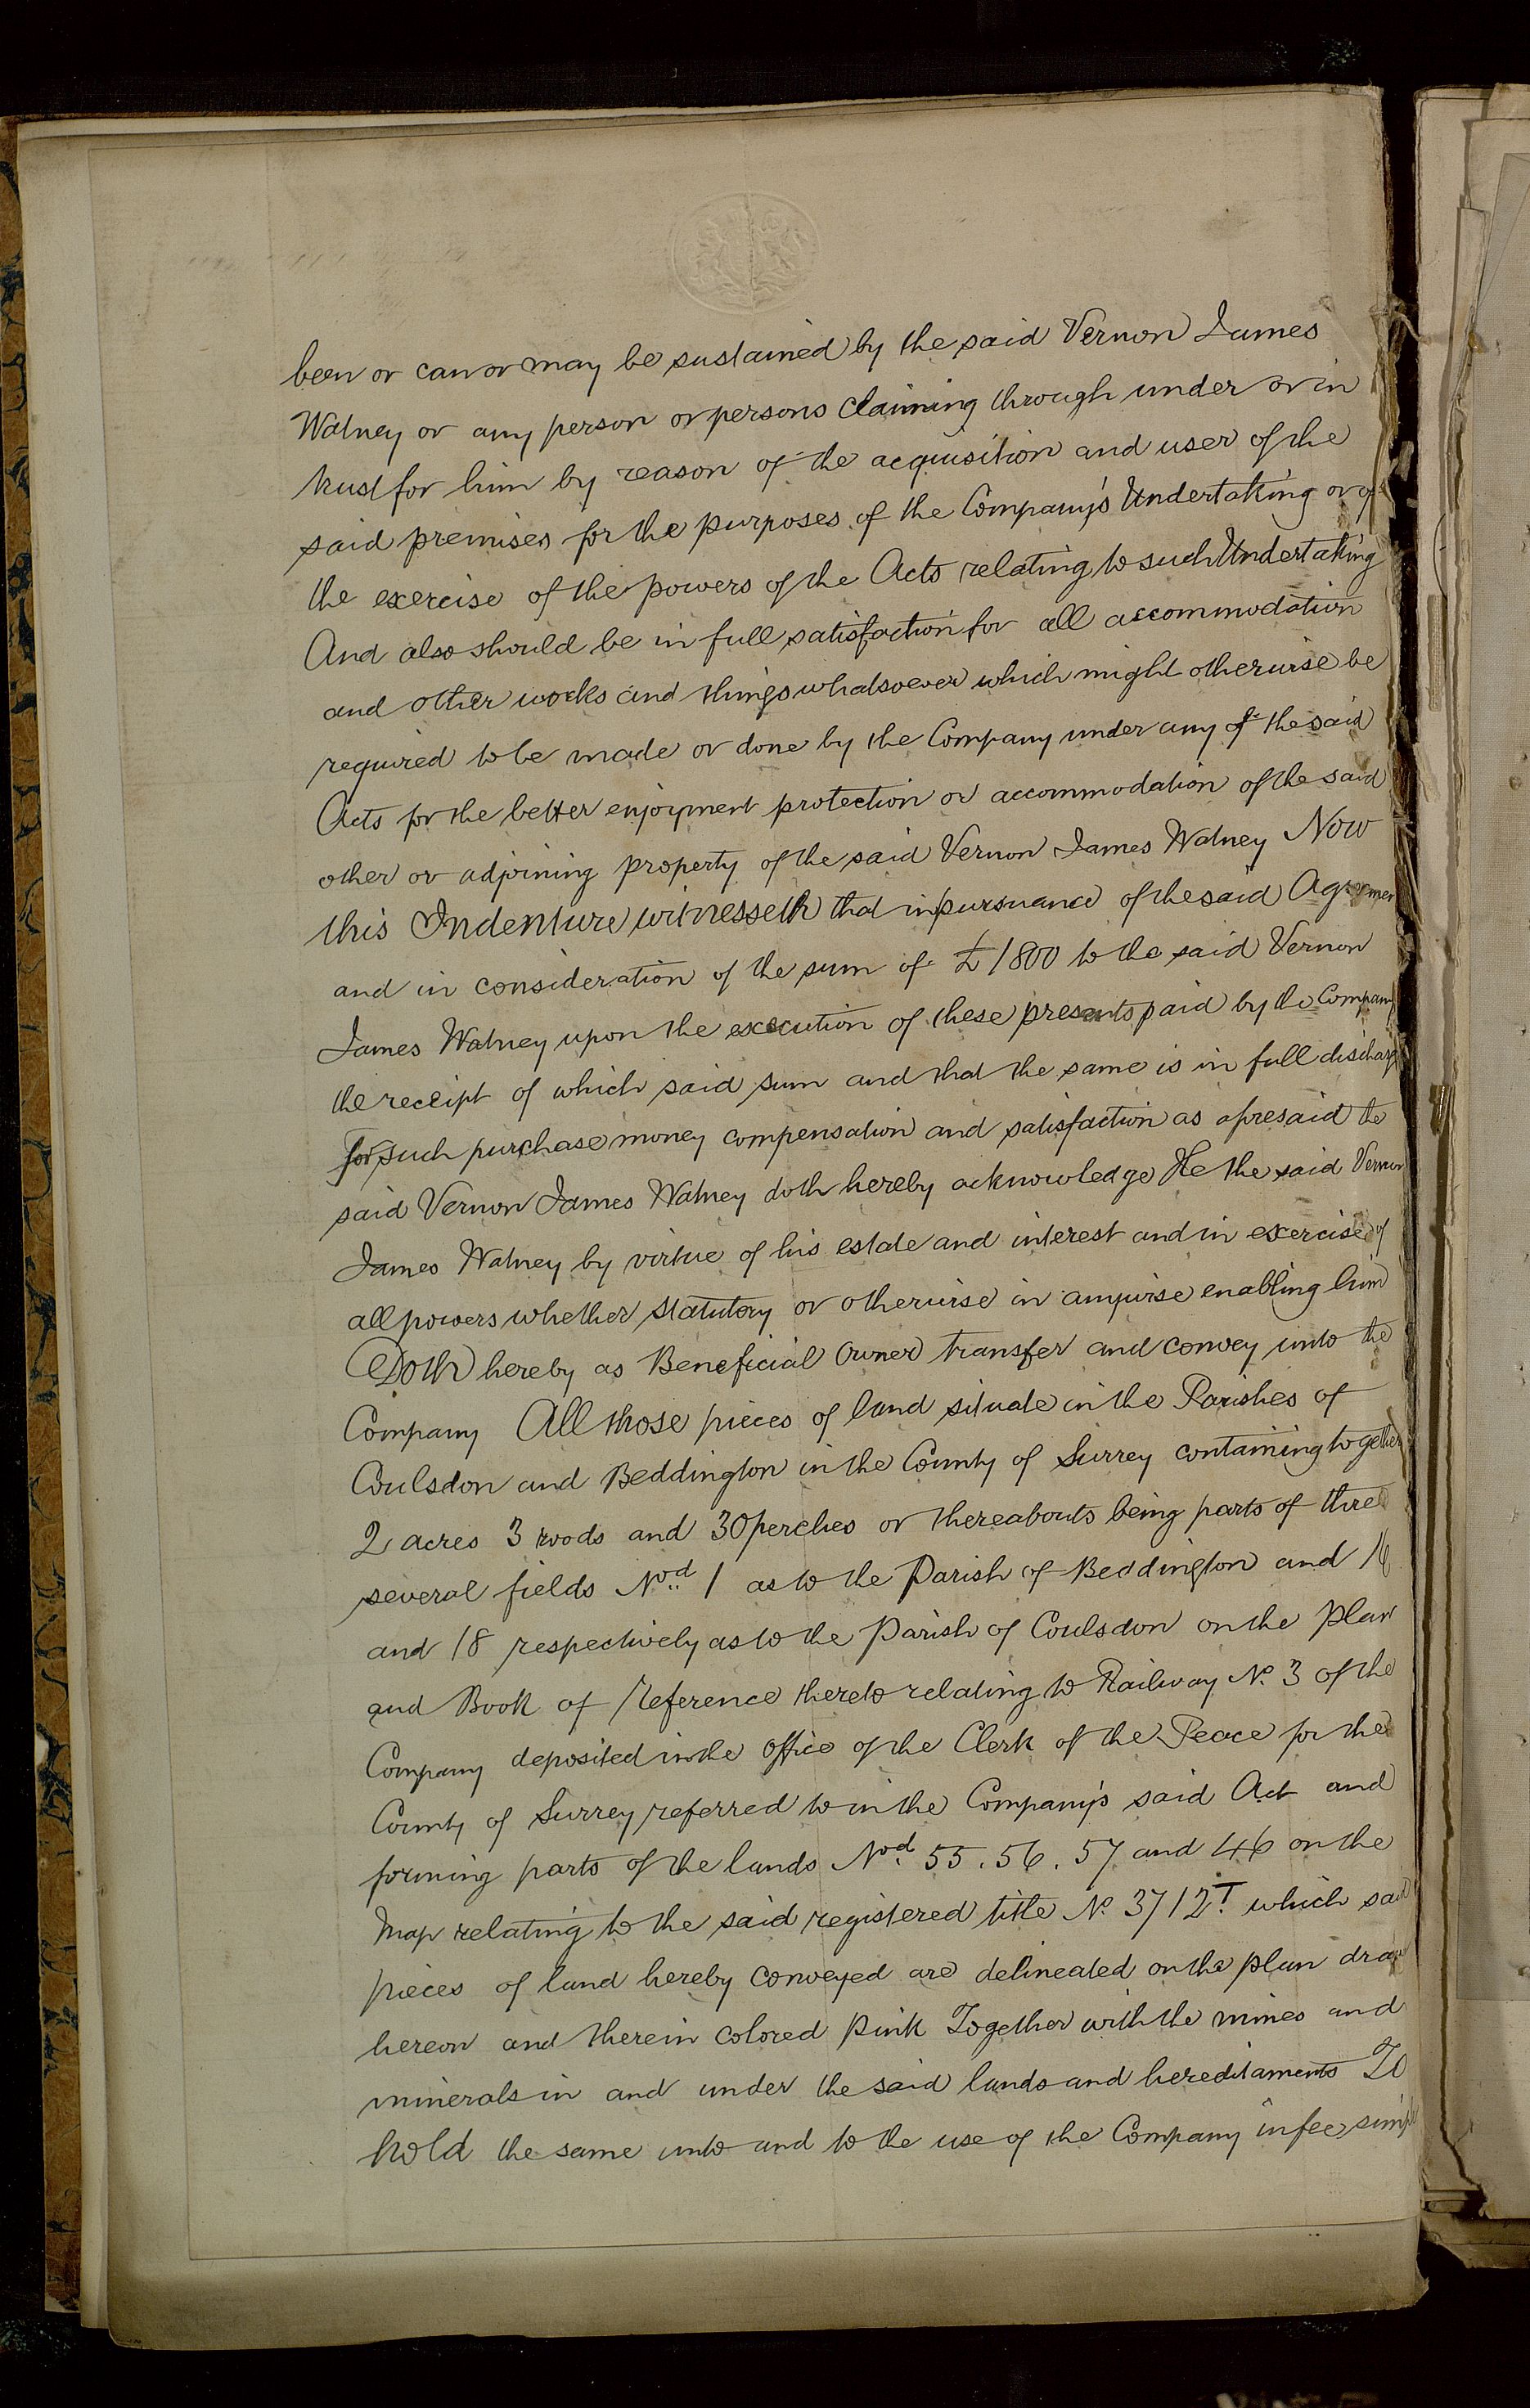 been or can or may be sustained by the said Vernon James
Watney or any person or persons claiming through under or in
trust for him by reason of the acquisition and user of the
said premises for the purposes of the Company's Undertaking or of
the exercise of the powers of the Acts relating to such Undertaking
And also should be in full satisfaction for all accommodation
and other works and things whatsoever which might otherwise be
required to be made or done by the Company under any of the said
Acts for the better enjoyment protection or accommodation of the said
other or adjoining property of the said Vernon James Watney Now
this Indenture witnesseth that in pursuance of the said Agreemen
and in consideration of the sum of £1800 to the said Vernon
James Watney upon the execution of these presents paid by the Company
the receipt of which said sum and that the same is in full discharge
for such purchase money compensation and satisfaction as aforesaid the
said Vernon James Watney doth hereby acknowledge He the said Vernon
James Watney by virtue of his estate and interest and in exercise of
all powers whether statutory or otherwise in anywise enabling him
Doth hereby as Beneficial Owner transfer and convey unto the
Company All those pieces of land situate in the Parishes of
Coulsdon and Beddington in the County of Surrey containing together
2 acres 3 roods and 30 perches or thereabouts being parts of three
several fields Nod. 1 as to the Parish of Beddington and 16
and 18 respectively as to the Parish of Coulsdon on the Plan
and Book of Reference thereto relating to Railway No. 3 of the
Company deposited in the Office of the Clerk of the Peace for the
County of Surrey referred to in the Company's said Act and
forming parts of the lands Nod. 55. 56. 57 and 46 on the
Map relating to the said registered title No. 3712T. which said
pieces of land hereby conveyed are delineated on the plan draw
hereon and therein colored Pink Together with the mines and
minerals in and under the said lands and hereditaments To
hold the same unto and to the use of the Company in fee simple